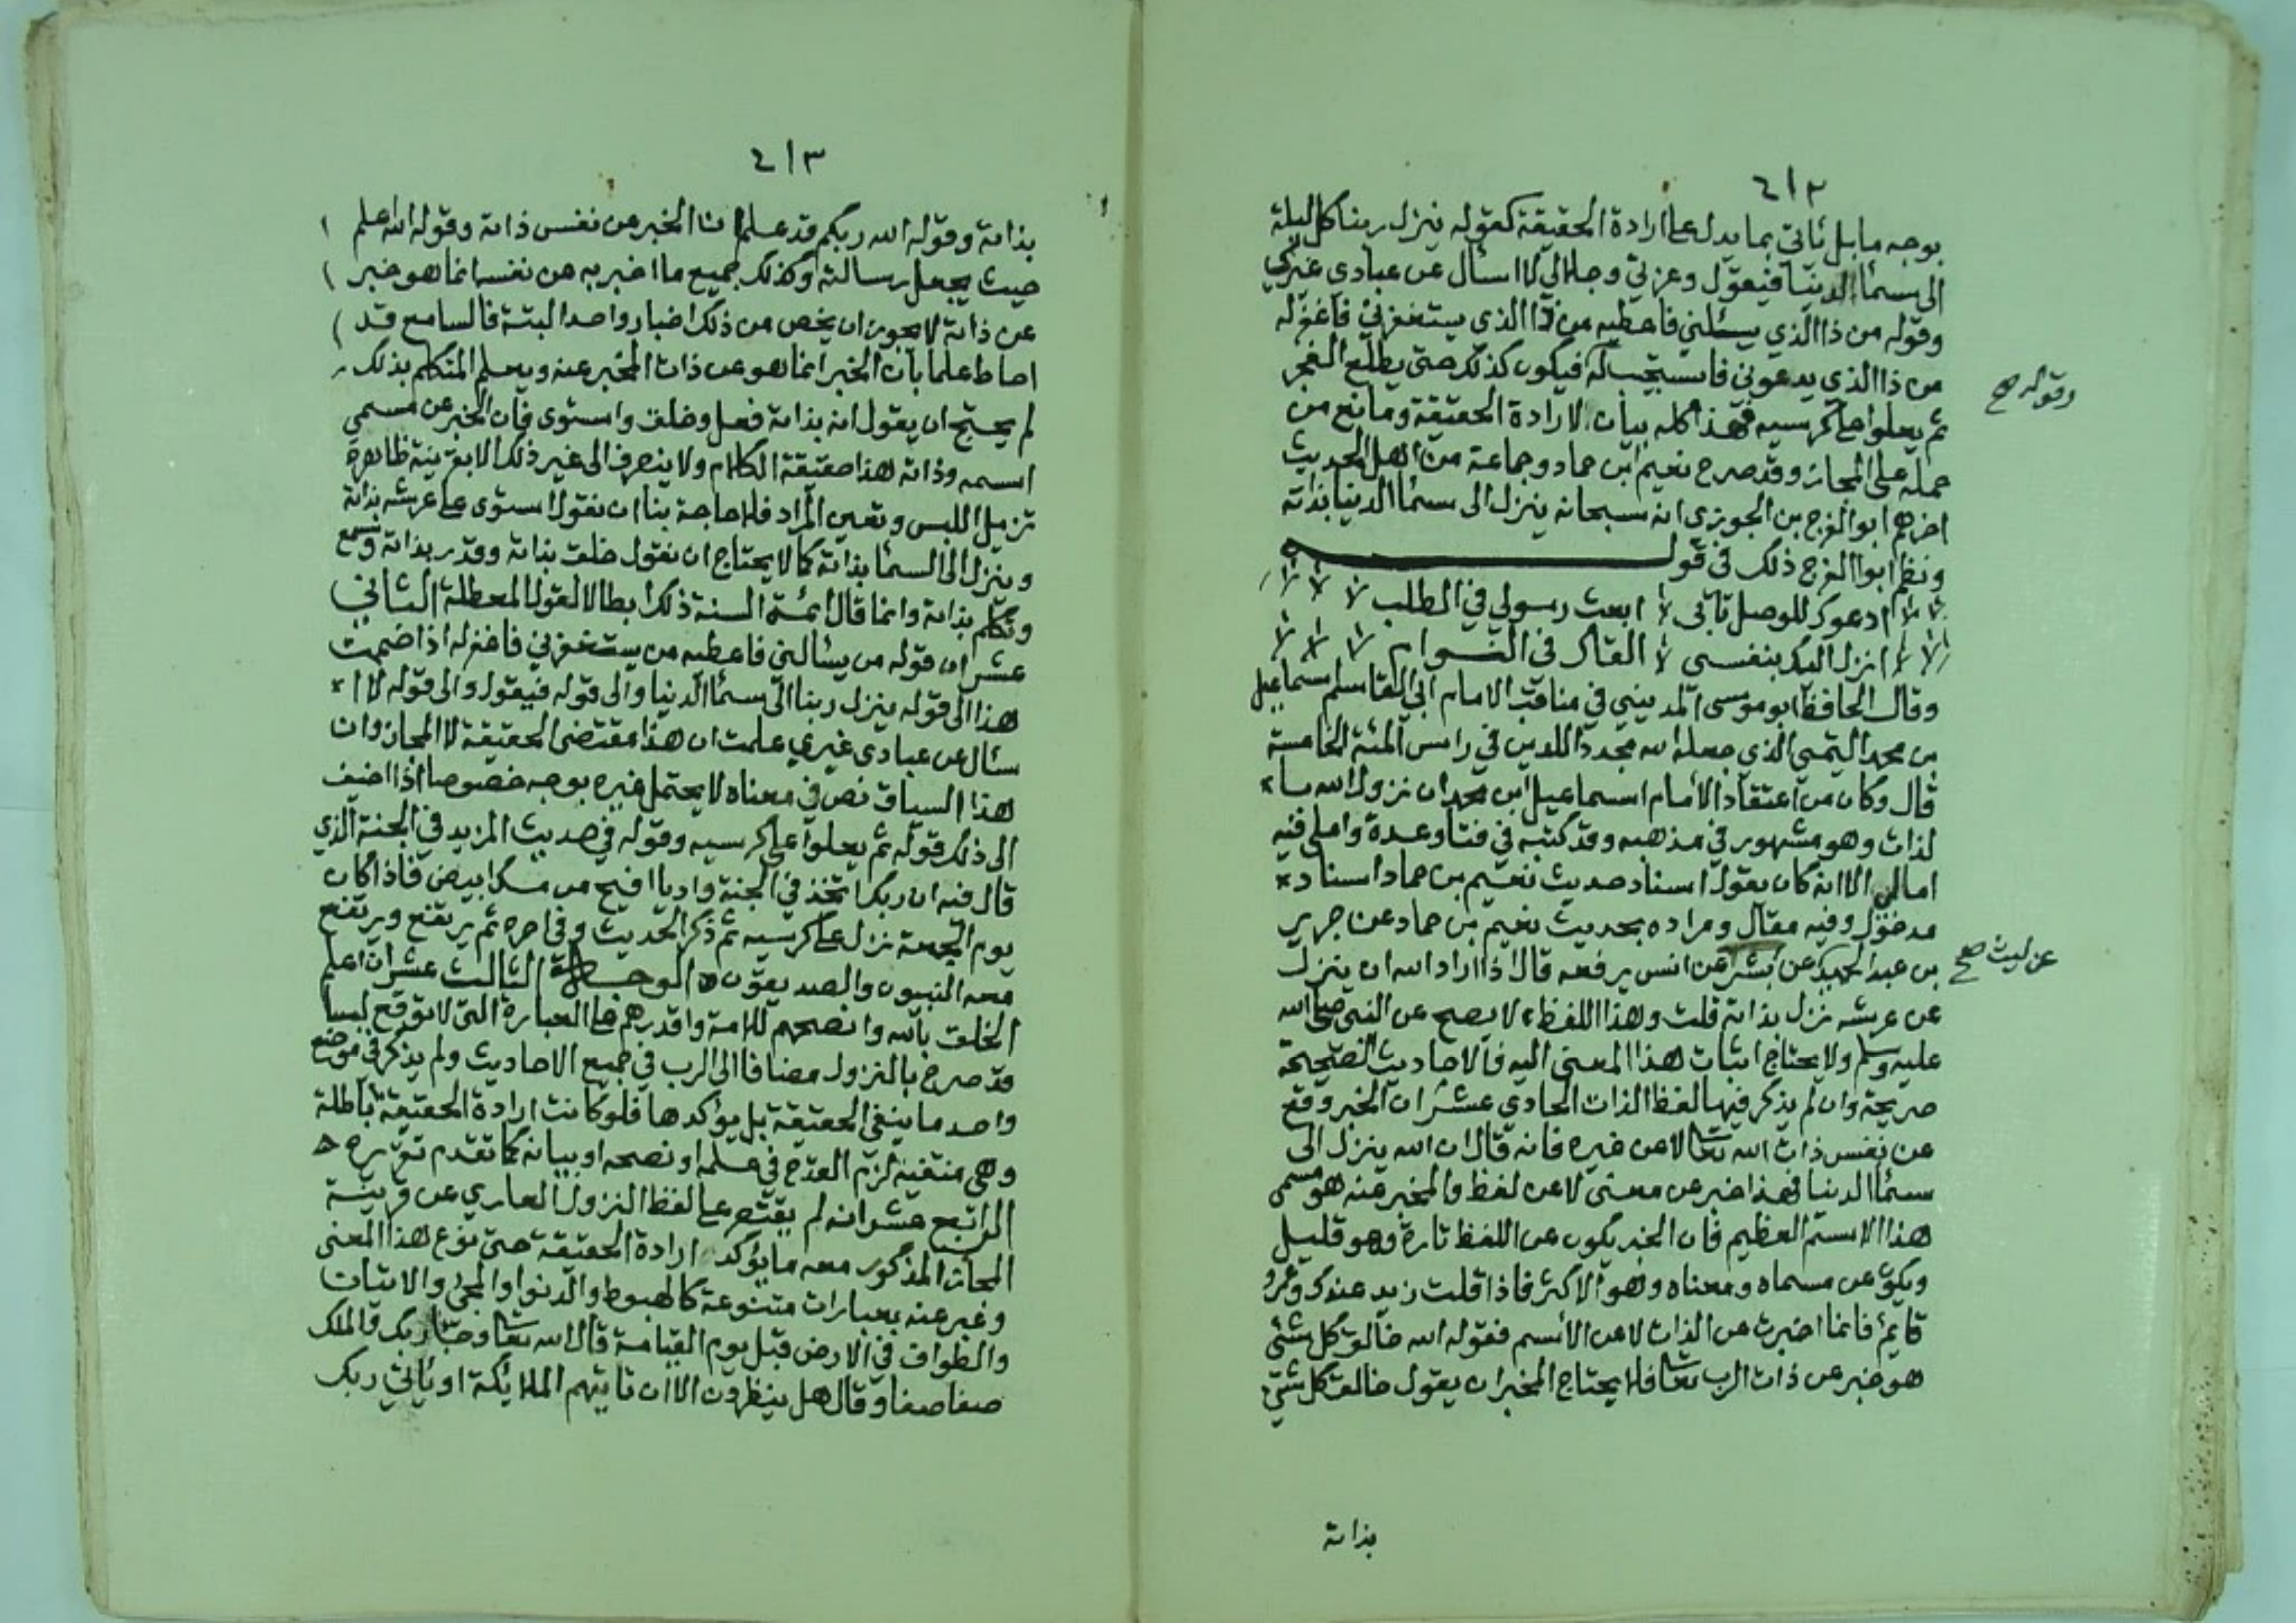 ٤١٢
بوجه ما بل ئاتي بما يدل على ارادة الحقيقة كقوله ينزل ربنا كل ليلة
الى سمأ الدنيا فيقول وعزتي وجلالي لا اسئال عن عبادي غيري
وقوله من ذا الذي يسئلني فاعطيه من ذا الذي يستغفرني فاغفر له
من ذا الذي يدعوني فاستجيب له فيكون كذلك حتى يطلع الفجر
وقوله صح
ثم يعلوا على كرسيه فهذا كله بيان لارادة الحقيقة ومانع من
حمله على المجاز وقد صرح نعيم ابن حماد وجماعة من اهل الحديث
اخرهم ابو الفرج بن الجوزي انه سبحانه ينزل الى سمأ الدنيا بذاته
ونظم ابوا الفرج ذلك في قوله
ادعوك للوصل تأبى ابعث رسولي في الطلب
انزل اليك بنفسى القاك في النوام
وقال الحافظ ابو موسى المديني في مناقب الامام ابي القاسم اسماعيل
بن محمد التيمي الذي جعله الله مجدداً للدين في راس المئة الخامسة
قال وكان من اعتقاد الأمام اسماعيل ابن محمد ان نزول الله با
لذات وهو مشهور في مذهبه وقد كتبه في فتاو عدة واملى فيه
امالي الا انه كان يقول اسناد حديث نعيم بن حماد اسناد
مدخول وفيه مقال ومراده بحديث نعيم بن حماد عن جرير
بن عبد الحميد عن بشر عن انس يرفعه قال اذا اراد الله ان ينزل
عن ليث صح
عن عرشه نزل بذاته قلت وهذا اللفظ لا يصح عن النبي صلى الله
عليه وسلم ولا يحتاج اثبات هذا المعنى اليه فالاحاديث الصحيحة
صريحة وان لم يذكر فيها لفظ الذات الحادي عشر ان الخبر وقع
عن نفس ذات الله تعا لا عن غيره فانه قال ان الله ينزل الى
سمأ الدنيا فهذا خبر عن معنى لا عن لفظ والمخبر عنه هو مسمى
هذا الاسم العظيم فان الخبر يكون عن اللفظ تارة وهو قليل
ويكون عن مسماه ومعناه وهو الاكثر فاذا قلت زيد عندك وعمرو
قايم فانما اخبرت عن الذات لا عن الأسم فقوله الله خالق كل شئ
هو خبر عن ذات الرب تعا فلا يحتاج المخبر ان يقول خالق كل شئ
بذاته
٤١٣
بذاته وقوله الله ربكم قد علم ان الخبر عن نفس ذاته وقوله الله اعلم
حيث يجعل رسالته وكذلك جميع ما اخبر به عن نفسه انما هو خبر
عن ذاته لا يجوز ان يخص من ذلك اخبار واحد البتة فالسامع قد
احاط علما بان الخبر انما هو عن ذات المخبر عنه ويعلم المتكلم بذلك
لم يحتج ان يقول انه بذاته فعل وخلق واستوى فان الخبر عن مسمى
اسمه وذاته هذا حقيقة الكلام ولا ينصرف الى غير ذلك الا بقرينة ظاهرة
تزيل اللبس وتعين المراد فلا حاجة بنا ان نقول استوى على عرشه بذاته
وينزل الى السمأ بذاته كما لا يحتاج ان نقول خلق بذاته وقدر بذاته وسمع
وتكلم بذاته وانما قال ائمة السنة ذلك ابطالا لقول المعطلة الثاني
عشر ان قوله من يسئالني فاعطيه من يستغفرني فاغفر له اذا ضممت
هذا الى قوله ينزل ربنا الى سمأ الدنيا والى قوله فيقول والى قوله لا ا
سئال عن عبادي غيري علمت ان هذا مقتضى الحقيقة لا المجاز وان
هذا السياق نص في معناه لا يحتمل غيره بوجه خصوصا اذا اضيف
الى ذلك قوله ثم يعلوا على كرسيه وقوله في حديث المزيد في الجنة الذي
قال فيه ان ربك اتخذ في الجنة واديا افيح من مسك ابيض فاذا كان
يوم الجمعة نزل على كرسيه ثم ذكر الحديث وفي اخره ثم يرتفع ويرتفع
معه النبيون والصديقون الوجه الثالث عشر ان اعلم
الخلق بالله وانصحهم للامة واقدرهم على العبارة التي لا توقع لبسا
قد صرح بالنزول مضافا الى الرب في جميع الاحاديث ولم يذكر في موضع
واحد ما ينفي الحقيقة بل يؤكدها فلو كانت ارادة الحقيقة باطلة
وهي منتفية لزم القدح في علمه او نصحه او بيانه كما تقدم تقريره
الرابع عشر انه لم يقتصر على لفظ النزول العاري عن قرينة
المجاز المذكور معه ما يؤكد ارادة الحقيقة حتى نوع هذا المعنى
وغبر عنه بعبارات متنوعة كالهبوط والدنوا والمجئ والاتيان
والطواف في الارض قبل يوم القيامة قال الله تعا وجاء ربك والملك
صفا صفا وقال هل ينظرون الا ان تاتيهم الملائكة او يأتي ربك